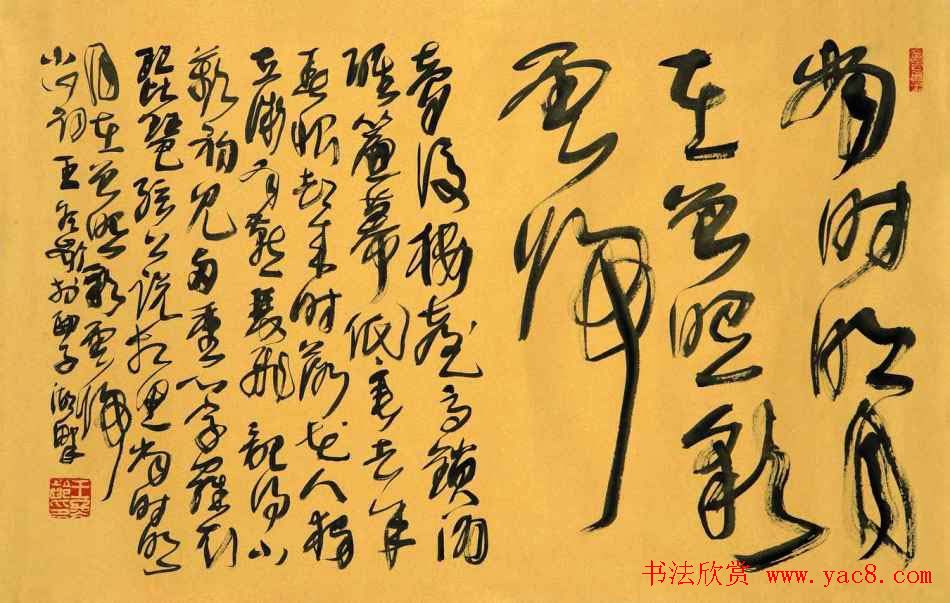 當時明月
在曾照彩
雲歸
夢後樓臺高鎖酒
醒簾幕低垂去年
春恨却來時落花人獨
立微雨燕雙飛記得小
蘋初見兩重心字羅衣
琵琶弦上說相思當時明
月在曾照彩雲歸
小山詞王冬齡於西子湖畔
书法欣赏 www.yac8.com